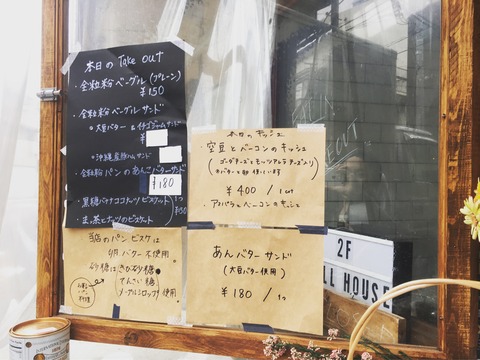 本日の Take out
・全粒粉ベーグル(プレーン)
¥150
・全粒粉ベーグルサンド
○大豆バター&イチゴジャムサンド
¥
・全粒粉パンのあんこバターサンド
¥180
・黒糖バナナココナッツビスケット
・抹茶とナッツのビスケット
¥150
当店のパン ビスケは
卵 バター 不使用
砂糖はきび砂糖
てんさい糖
メープルシロップ 使用
本日のキッシュ
・空豆とベーコンのキッシュ
(ゴーダチーズとモッツァレラチーズ入り
¥400 / 1cut
・アスパラとベーコンのキッシュ
あんバターサンド
(大豆バター使用)
¥180 / 1つ
2F
LL HOUSE